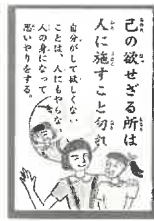 己の欲せざる所は
人に施すこと勿れ
自分がして欲しくない
ことは、人にもやらない。
人の身になって
思いやりをする。